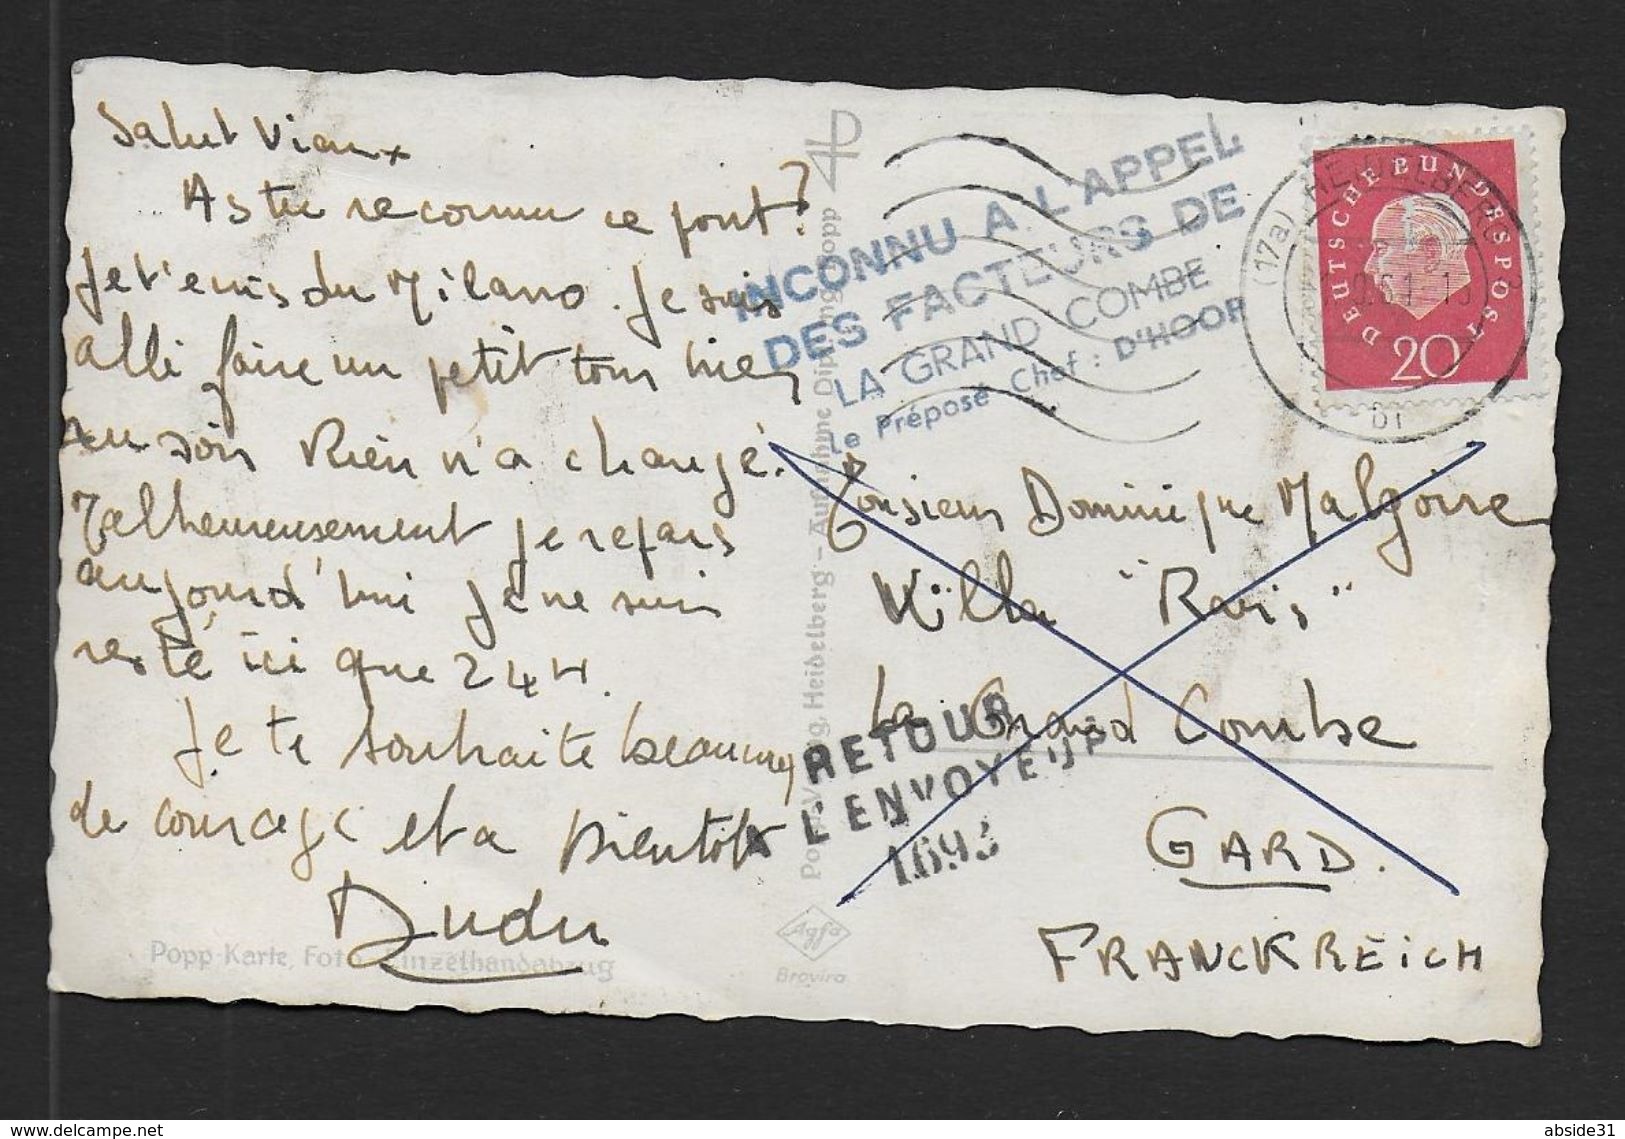 Salut Viaux
As tu reconnu ce pont?
Je t'ecris du Milano. Je suis
allé faire un petit tour hier
au soir Rien n'a changé.
Malheureusement je repars
aujourd'hui je ne suis
resté ici que 24H.
Je te souhaite beaucoup
de courage et a bientôt
Dudu
Popp-Karte, Foto-Einzelhandabzug
Popp-Verlag, Heidelberg – Aufnahme Dipl.-Ing. Popp
Agfa
Brovira
INCONNU A L'APPEL
DES FACTEURS DE
LA GRAND COMBE
Le Préposé Chef : D'HOOP
(17a) HEIDELBERG
61-15
DEUTSCHE BUNDESPOST
20
Monsieur Dominique Malgoire
Villa "Ravis"
La Grand Combe
GARD.
FRANCKREICH
RETOUR
A L'ENVOYEUR
1693
delcampe.net
abside31